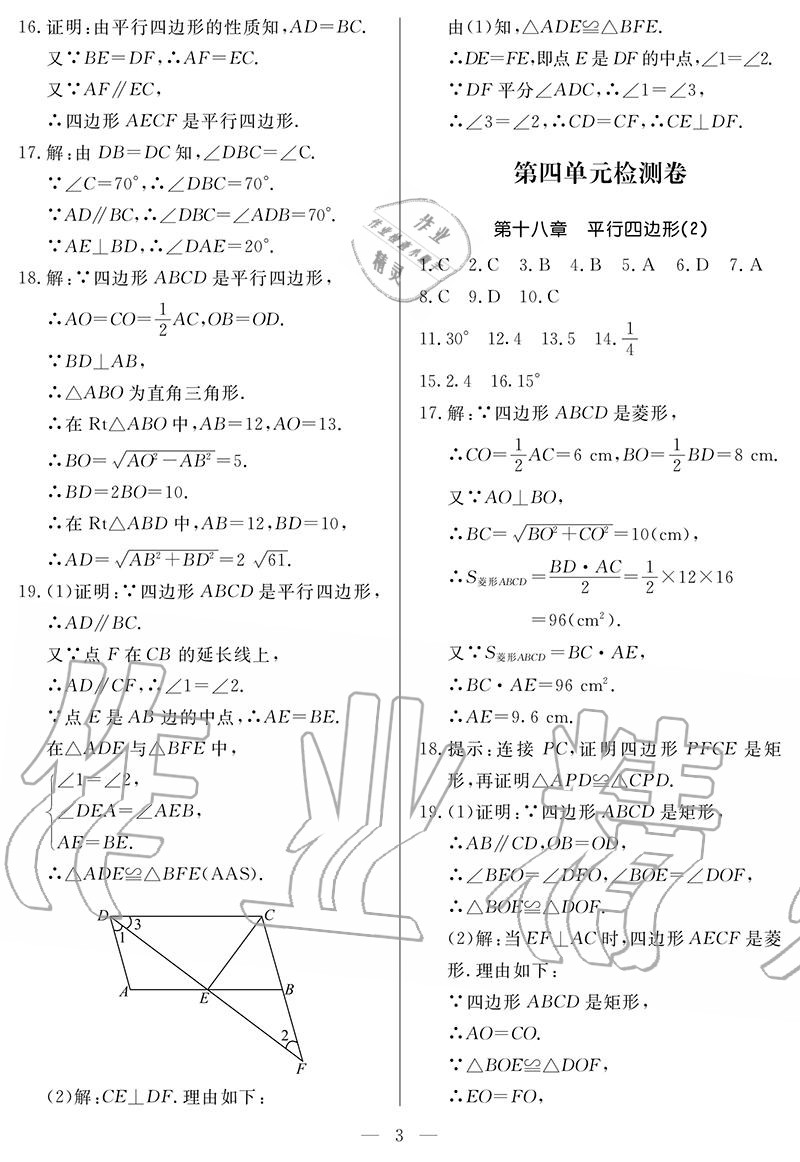 16.证明:由平行四边形的性质知,AD=BC.
又∵BE=DF,∴AF=EC.
又∵AF∥EC,
∴四边形AECF是平行四边形.
17.解:由DB=DC知,∠DBC=∠C.
∵∠C=70°,∴∠DBC=70°.
∵AD∥BC,∴∠DBC=∠ADB=70°.
∵AE⊥BD,∴∠DAE=20°.
18.解:∵四边形ABCD是平行四边形,
∴AO=CO=1/2AC,OB=OD.
∵BD⊥AB,
∴△ABO为直角三角形.
∴在Rt△ABO中,AB=12,AO=13.
∴BO=√(AO²-AB²)=5.
∴BD=2BO=10.
∴在Rt△ABD中,AB=12,BD=10,
∴AD=√(AB²+BD²)=2√61.
19.(1)证明:∵四边形ABCD是平行四边形,
∴AD∥BC.
又∵点F在CB的延长线上,
∴AD∥CF,∴∠1=∠2.
∵点E是AB边的中点,∴AE=BE.
在△ADE与△BFE中,
∠1=∠2,
∠DEA=∠AEB,
AE=BE.
∴△ADE≌△BFE(AAS).
D 3 C
1
A E B
2
F
(2)解:CE⊥DF.理由如下:
由(1)知,△ADE≌△BFE.
∴DE=FE,即点E是DF的中点,∠1=∠2.
∵DF平分∠ADC,∴∠1=∠3,
∴∠3=∠2,∴CD=CF,∴CE⊥DF.
第四单元检测卷
第十八章 平行四边形(2)
1.C 2.C 3.B 4.B 5.A 6.D 7.A
8.C 9.D 10.C
11.30° 12.4 13.5 14.1/4
15.2.4 16.15°
17.解:∵四边形ABCD是菱形,
∴CO=1/2AC=6 cm,BO=1/2BD=8 cm.
又∵AO⊥BO,
∴BC=√(BO²+CO²)=10(cm),
∴S菱形ABCD=BD·AC/2=1/2×12×16
=96(cm²).
又∵S菱形ABCD=BC·AE,
∴BC·AE=96 cm².
∴AE=9.6 cm.
18.提示:连接PC,证明四边形PFCE是矩
形,再证明△APD≌△CPD.
19.(1)证明:∵四边形ABCD是矩形,
∴AB∥CD,OB=OD,
∴∠BEO=∠DFO,∠BOE=∠DOF,
∴△BOE≌△DOF.
(2)解:当EF⊥AC时,四边形AECF是菱
形.理由如下:
∵四边形ABCD是矩形,
∴AO=CO.
∵△BOE≌△DOF,
∴EO=FO,
— 3 —
作业
精灵
作业精